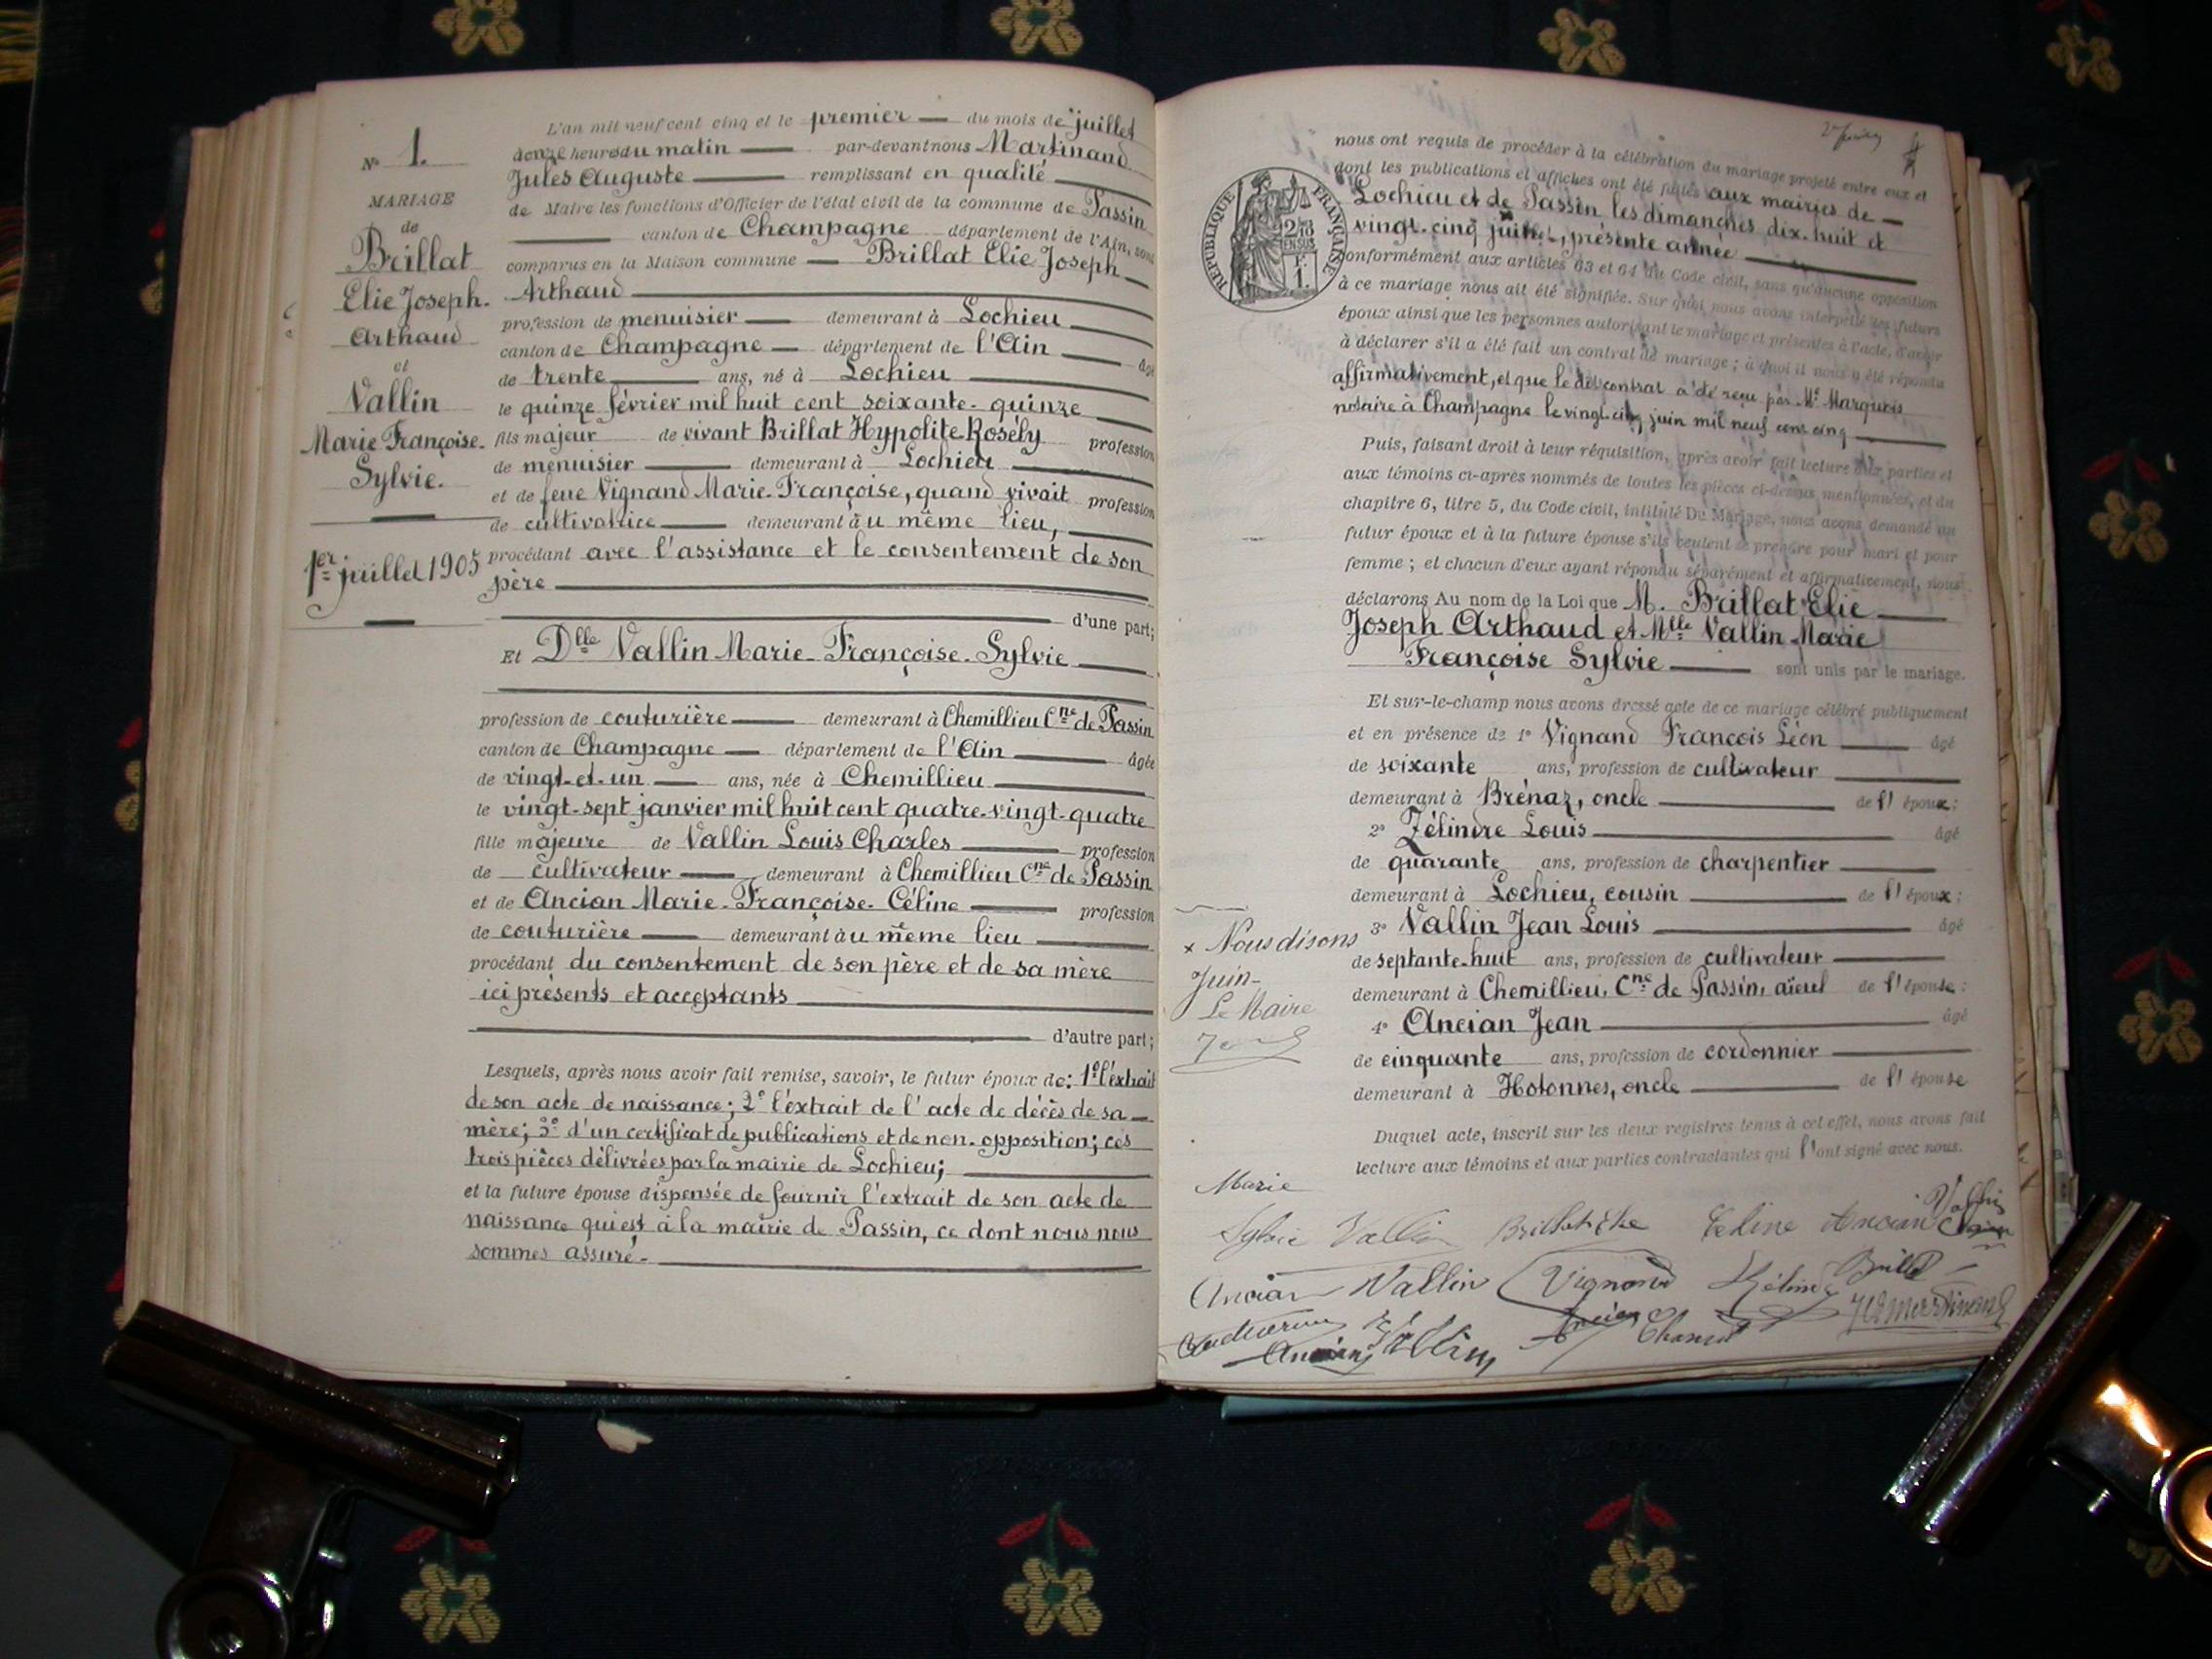 N° 1.
MARIAGE
de
Brillat
Elie Joseph.
Arthaud
et
Vallin
Marie Françoise.
Sylvie.
1er juillet 1905
L'an mil neuf cent cinq et le premier du mois de juillet
heures du matin par-devant nous Martinand
Jules Auguste remplissant en qualité
de Maire les fonctions d'Officier de l'état civil de la commune de Passin
canton de Champagne département de l'Ain, sont
comparus en la Maison commune Brillat Elie Joseph
Arthaud
profession de menuisier demeurant à Lochieu
canton de Champagne département de l'Ain âgé
de trente ans, né à Lochieu
le quinze février mil huit cent soixante-quinze
fils majeur de vivant Brillat Hypolite Rosély profession
de menuisier demeurant à Lochieu
et de feue Vignand Marie-Françoise, quand vivait profession
de cultivatrice demeurant au même lieu,
procédant avec l'assistance et le consentement de son
père
d'une part;
Et Dlle Vallin Marie-Françoise-Sylvie
profession de couturière demeurant à Chemillieu Cne de Passin
canton de Champagne département de l'Ain âgée
de vingt-et-un ans, née à Chemillieu
le vingt-sept janvier mil huit cent quatre-vingt-quatre
fille majeure de Vallin Louis Charles profession
de cultivateur demeurant à Chemillieu Cne de Passin
et de Ancian Marie-Françoise-Céline profession
de couturière demeurant au même lieu
procédant du consentement de son père et de sa mère
ici présents et acceptants
d'autre part;
Lesquels, après nous avoir fait remise, savoir, le futur époux de: 1° l'extrait
de son acte de naissance; 2° l'extrait de l'acte de décès de sa
mère; 3° d'un certificat de publications et de non-opposition; ces
trois pièces délivrées par la mairie de Lochieu;
et la future épouse dispensée de fournir l'extrait de son acte de
naissance qui est à la mairie de Passin, ce dont nous nous
sommes assuré.
RÉPUBLIQUE FRANÇAISE
2/10 EN SUS
F. 1.
nous ont requis de procéder à la célébration du mariage projeté entre eux et
dont les publications et affiches ont été faites aux mairies de
Lochieu et de Passin les dimanches dix-huit et
vingt-cinq présente année
conformément aux articles 63 et 64 du Code civil, sans qu'aucune opposition
à ce mariage nous ait été signifiée. Sur quoi, nous avons interpellé les futurs
époux ainsi que les personnes autorisant le mariage et présentes à l'acte, d'avoir
à déclarer s'il a été fait un contrat de mariage; à quoi il nous a été répondu
affirmativement, et que le dit contrat a été reçu par Me Marquis
notaire à Champagne le vingt-cinq juin mil neuf cent cinq
Puis, faisant droit à leur réquisition, après avoir fait lecture aux parties et
aux témoins ci-après nommés de toutes les pièces ci-dessus mentionnées, et du
chapitre 6, titre 5, du Code civil, intitulé Du Mariage, nous avons demandé au
futur époux et à la future épouse s'ils veulent se prendre pour mari et pour
femme; et chacun d'eux ayant répondu séparément et affirmativement, nous
déclarons Au nom de la Loi que M. Brillat Elie
Joseph Arthaud et Mlle Vallin Marie
Françoise Sylvie sont unis par le mariage.
Et sur-le-champ nous avons dressé acte de ce mariage célébré publiquement
et en présence de 1° Vignand François Léon âgé
de soixante ans, profession de cultivateur
demeurant à Brénaz, oncle de l'époux;
2° Zélindre Louis âgé
de quarante ans, profession de charpentier
demeurant à Lochieu, cousin de l'époux;
3° Vallin Jean Louis âgé
de septante-huit ans, profession de cultivateur
demeurant à Chemillieu, Cne de Passin, aïeul de l'épouse;
4° Ancian Jean âgé
de cinquante ans, profession de cordonnier
demeurant à Hotonnes, oncle de l'épouse
x Nous disons
Juin-
Le Maire
Duquel acte, inscrit sur les deux registres tenus à cet effet, nous avons fait
lecture aux témoins et aux parties contractantes qui l'ont signé avec nous.
Marie
Sylvie Vallin Brillat Elie Céline Ancian Vallin
Ancian Vallin Vignand Brillat
Ancian Vallin Ancian